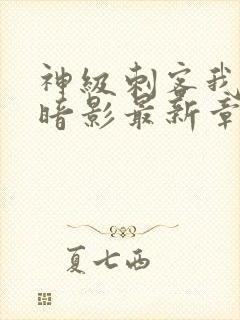 神级刺客我
暗影最新章
夏七西